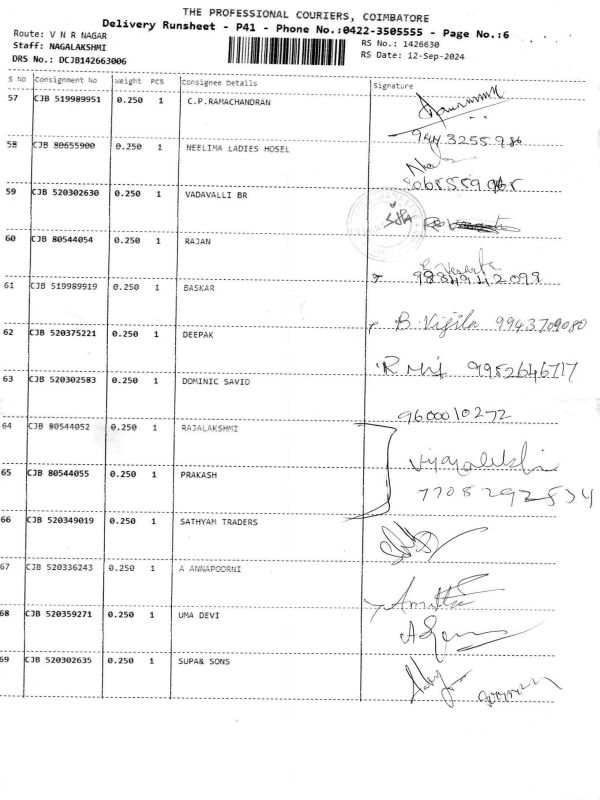 THE PROFESSIONAL COURIERS, COIMBATORE
Delivery Runsheet - P41 - Phone No.:0422-3505555 - Page No.:6
Route: V N R NAGAR
Staff: NAGALAKSHMI
DRS No.: DCJB142663006
RS No.: 1426630
RS Date: 12-Sep-2024
S NO Consignment No Weight PCS Consignee Details Signature
57 CJB 519989951 0.250 1 C.P.RAMACHANDRAN
944 3255 986
58 CJB 80655900 0.250 1 NEELIMA LADIES HOSEL
59 CJB 520302630 0.250 1 VADAVALLI BR
60 CJB 80544054 0.250 1 RAJAN
61 CJB 519989919 0.250 1 BASKAR
B. Vijila 9943709080
62 CJB 520375221 0.250 1 DEEPAK
9952646717
63 CJB 520302583 0.250 1 DOMINIC SAVIO
9600010272
64 CJB 80544052 0.250 1 RAJALAKSHMI
Vijayalakshmi
65 CJB 80544055 0.250 1 PRAKASH
7708292534
66 CJB 520349019 0.250 1 SATHYAM TRADERS
67 CJB 520336243 0.250 1 A ANNAPOORNI
68 CJB 520359271 0.250 1 UMA DEVI
69 CJB 520302635 0.250 1 SUPA& SONS